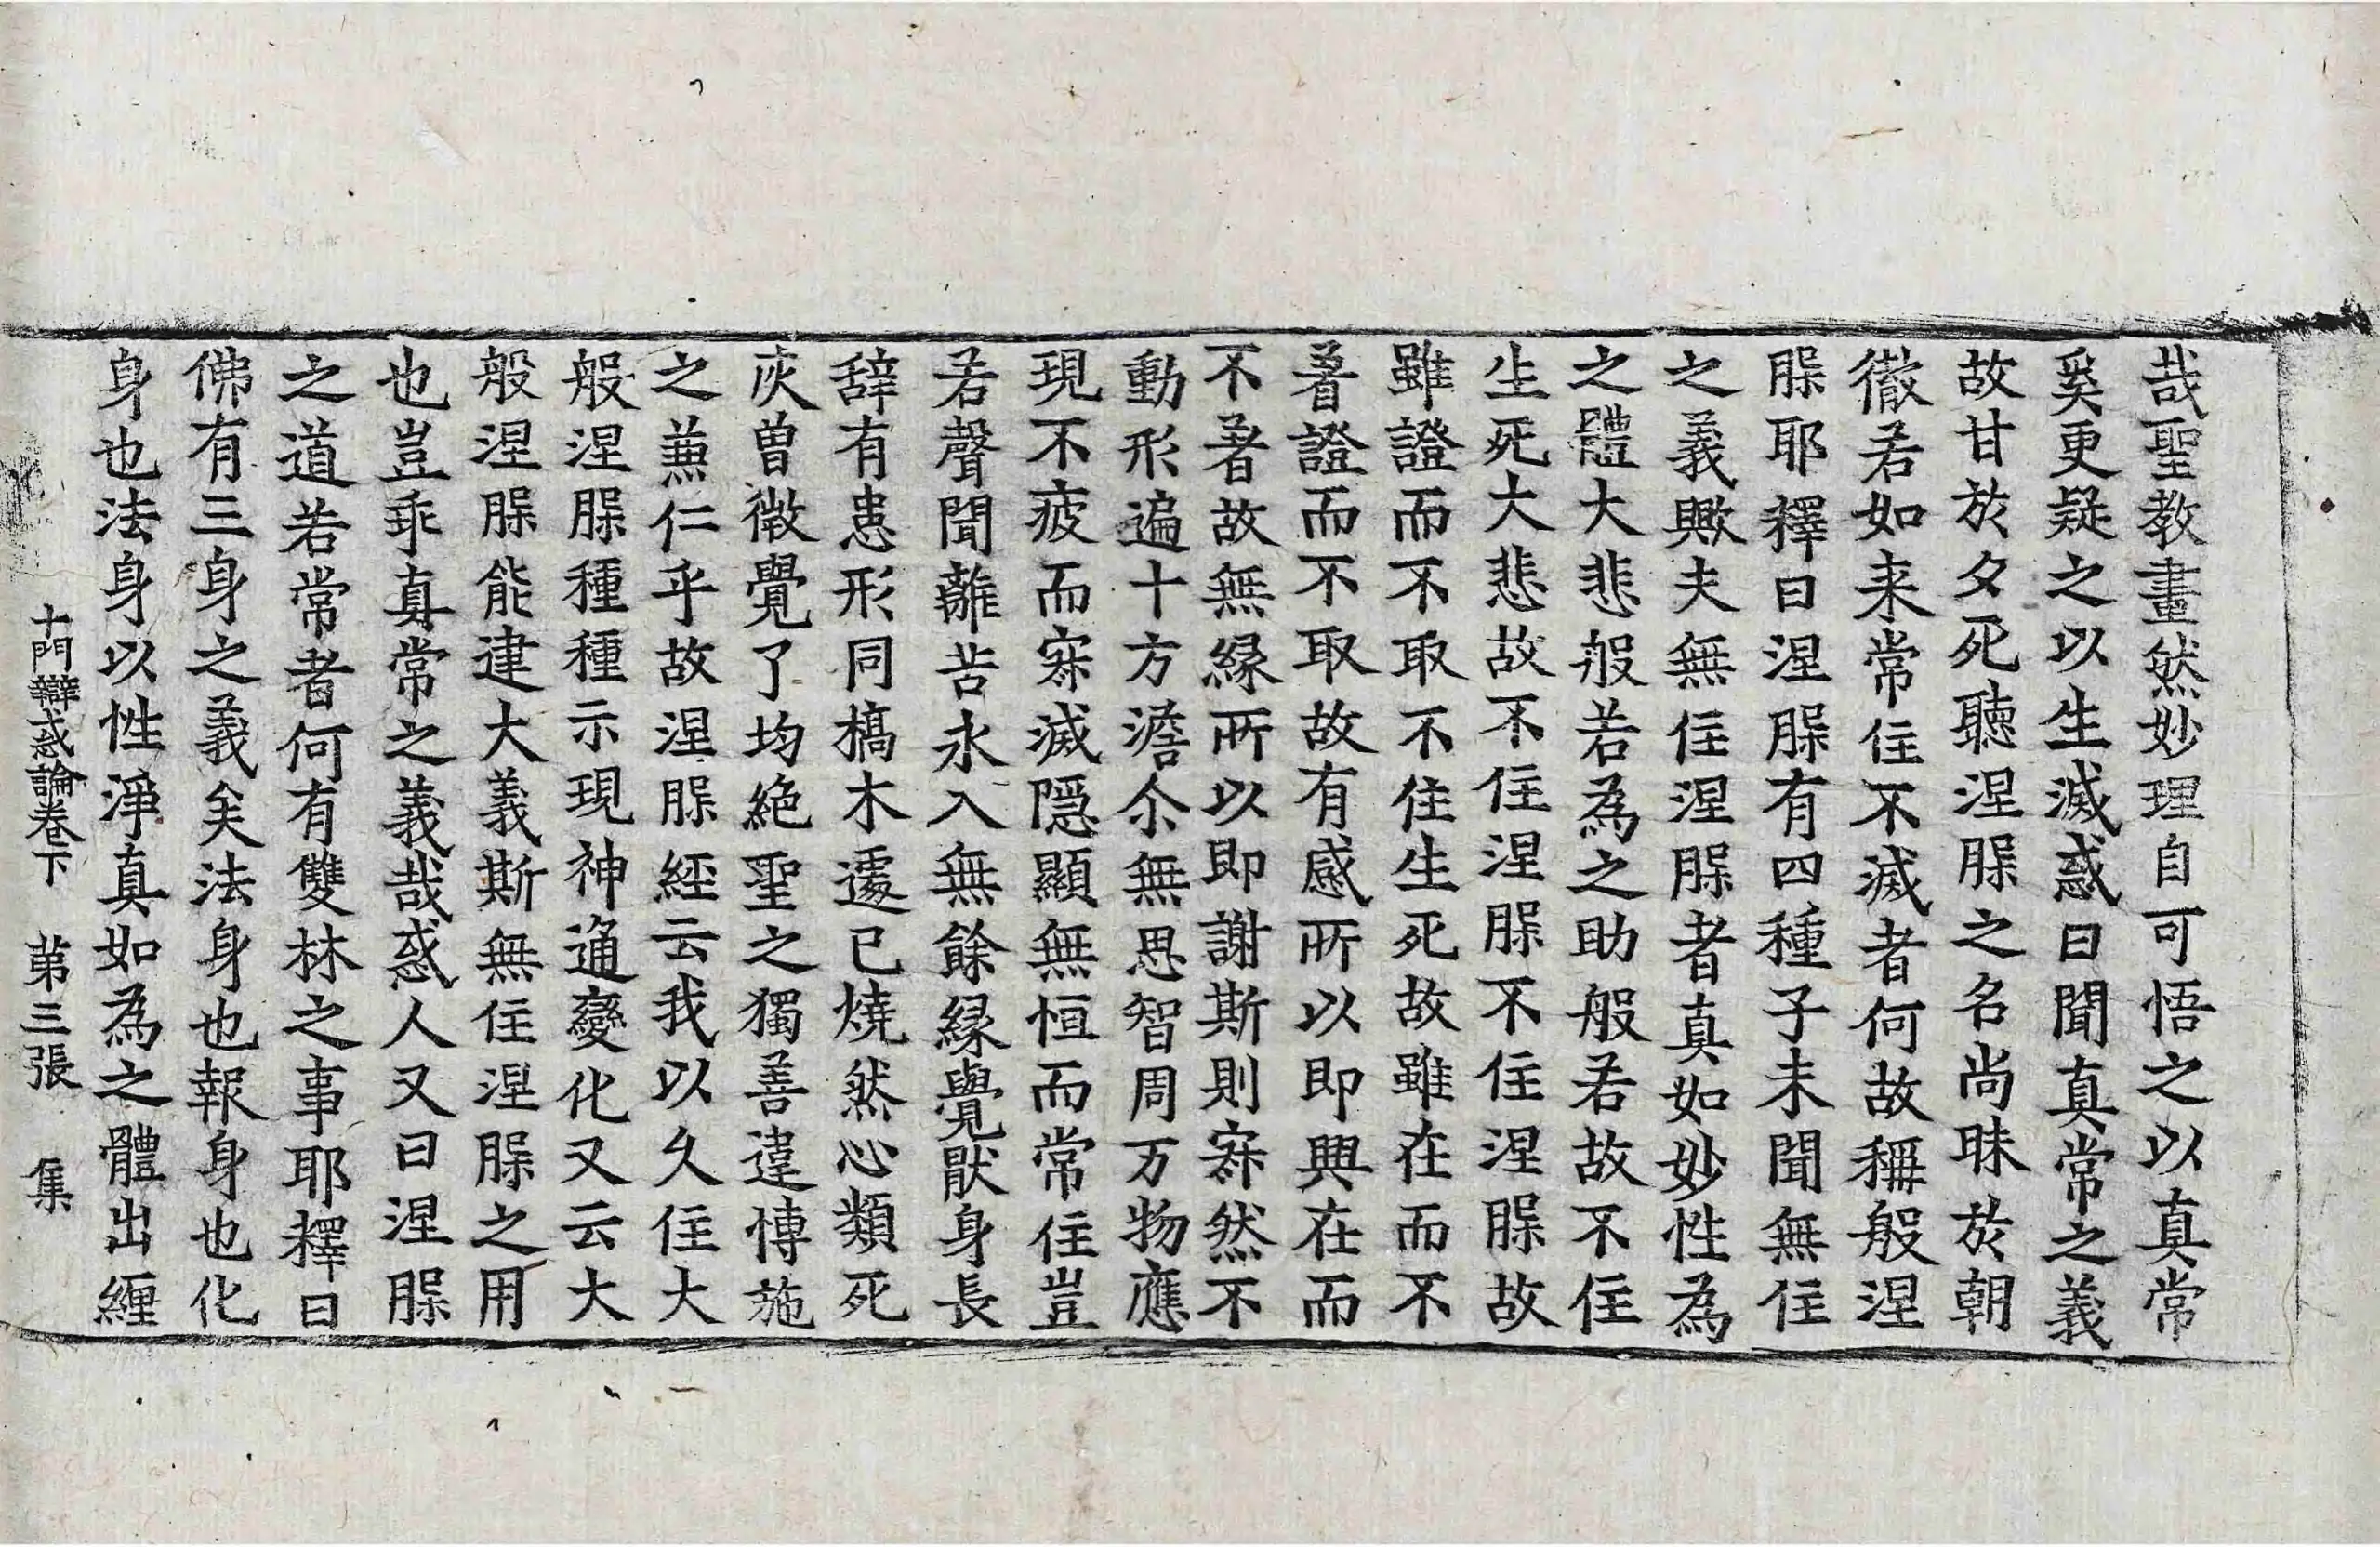 哉聖教畫然妙理自可悟之以真常
奚更疑之以生滅惑曰聞真常之義
故甘於夕死聽涅槃之名尚昧於朝
徹若如来常住不滅者何故稱般涅
槃耶釋曰涅槃有四種子未聞無住
之義歟夫無住涅槃者真如妙性為
之體大悲般若為之助般若故不住
生死大悲故不住涅槃不住涅槃故
雖證而不取不住生死故雖在而不
著證而不取故有感所以即興在而
不著故無緣所以即謝斯則寂然不
動形遍十方澹尒無思智周万物應
現不疲而寂滅隱顯無恒而常住豈
若聲聞離苦永入無餘緣覺猒身長
辭有患形同槁木遽已燒然心類死
灰曾微覺了均絶聖之獨善違博施
之兼仁乎故涅槃經云我以久住大
般涅槃種種示現神通變化又云大
般涅槃能建大義斯無住涅槃之用
也豈乖真常之義哉惑人又曰涅槃
之道若常者何有雙林之事耶釋曰
佛有三身之義矣法身也報身也化
身也法身以性淨真如為之體出纏
十門辯惑論卷下 第三張 集